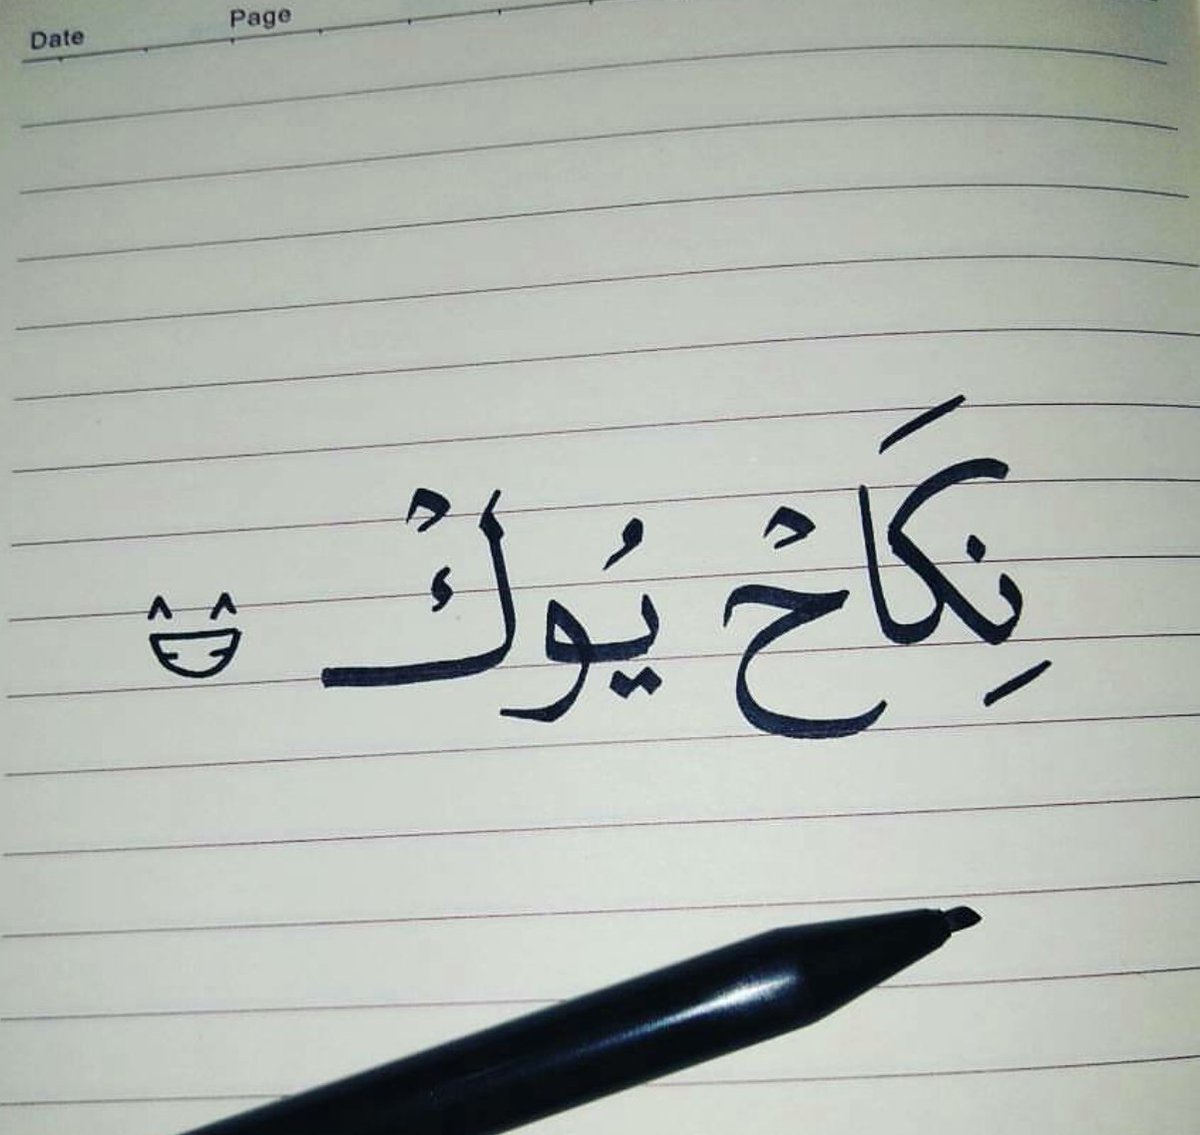 Date Page
نِكَاحْ يُوكْ